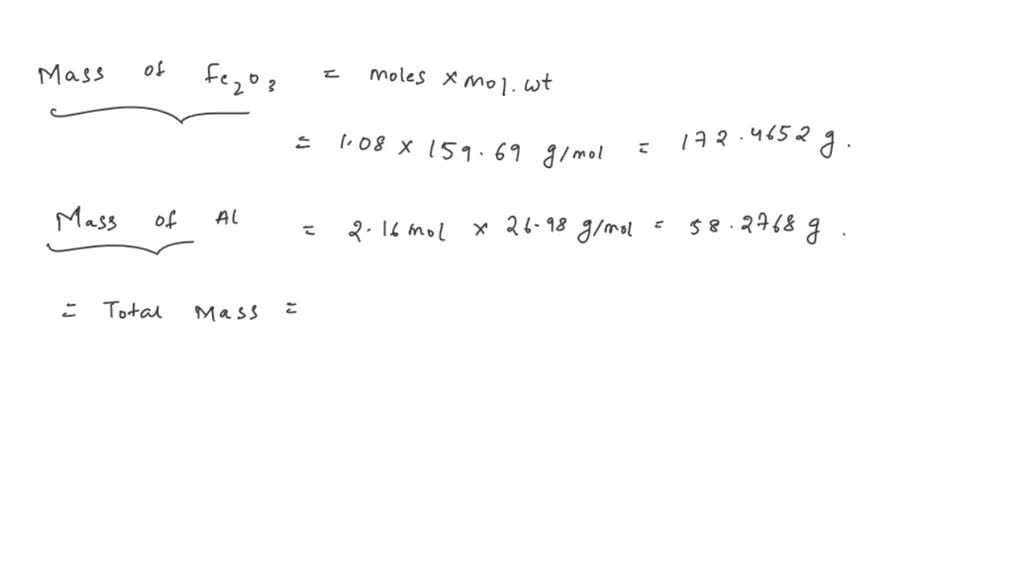 Mass of Fe2O3 = moles x mol. wt
= 1.08 x 159.69 g/mol = 172.4652 g.
Mass of Al = 2.16 mol x 26.98 g/mol = 58.2768 g.
= Total Mass =